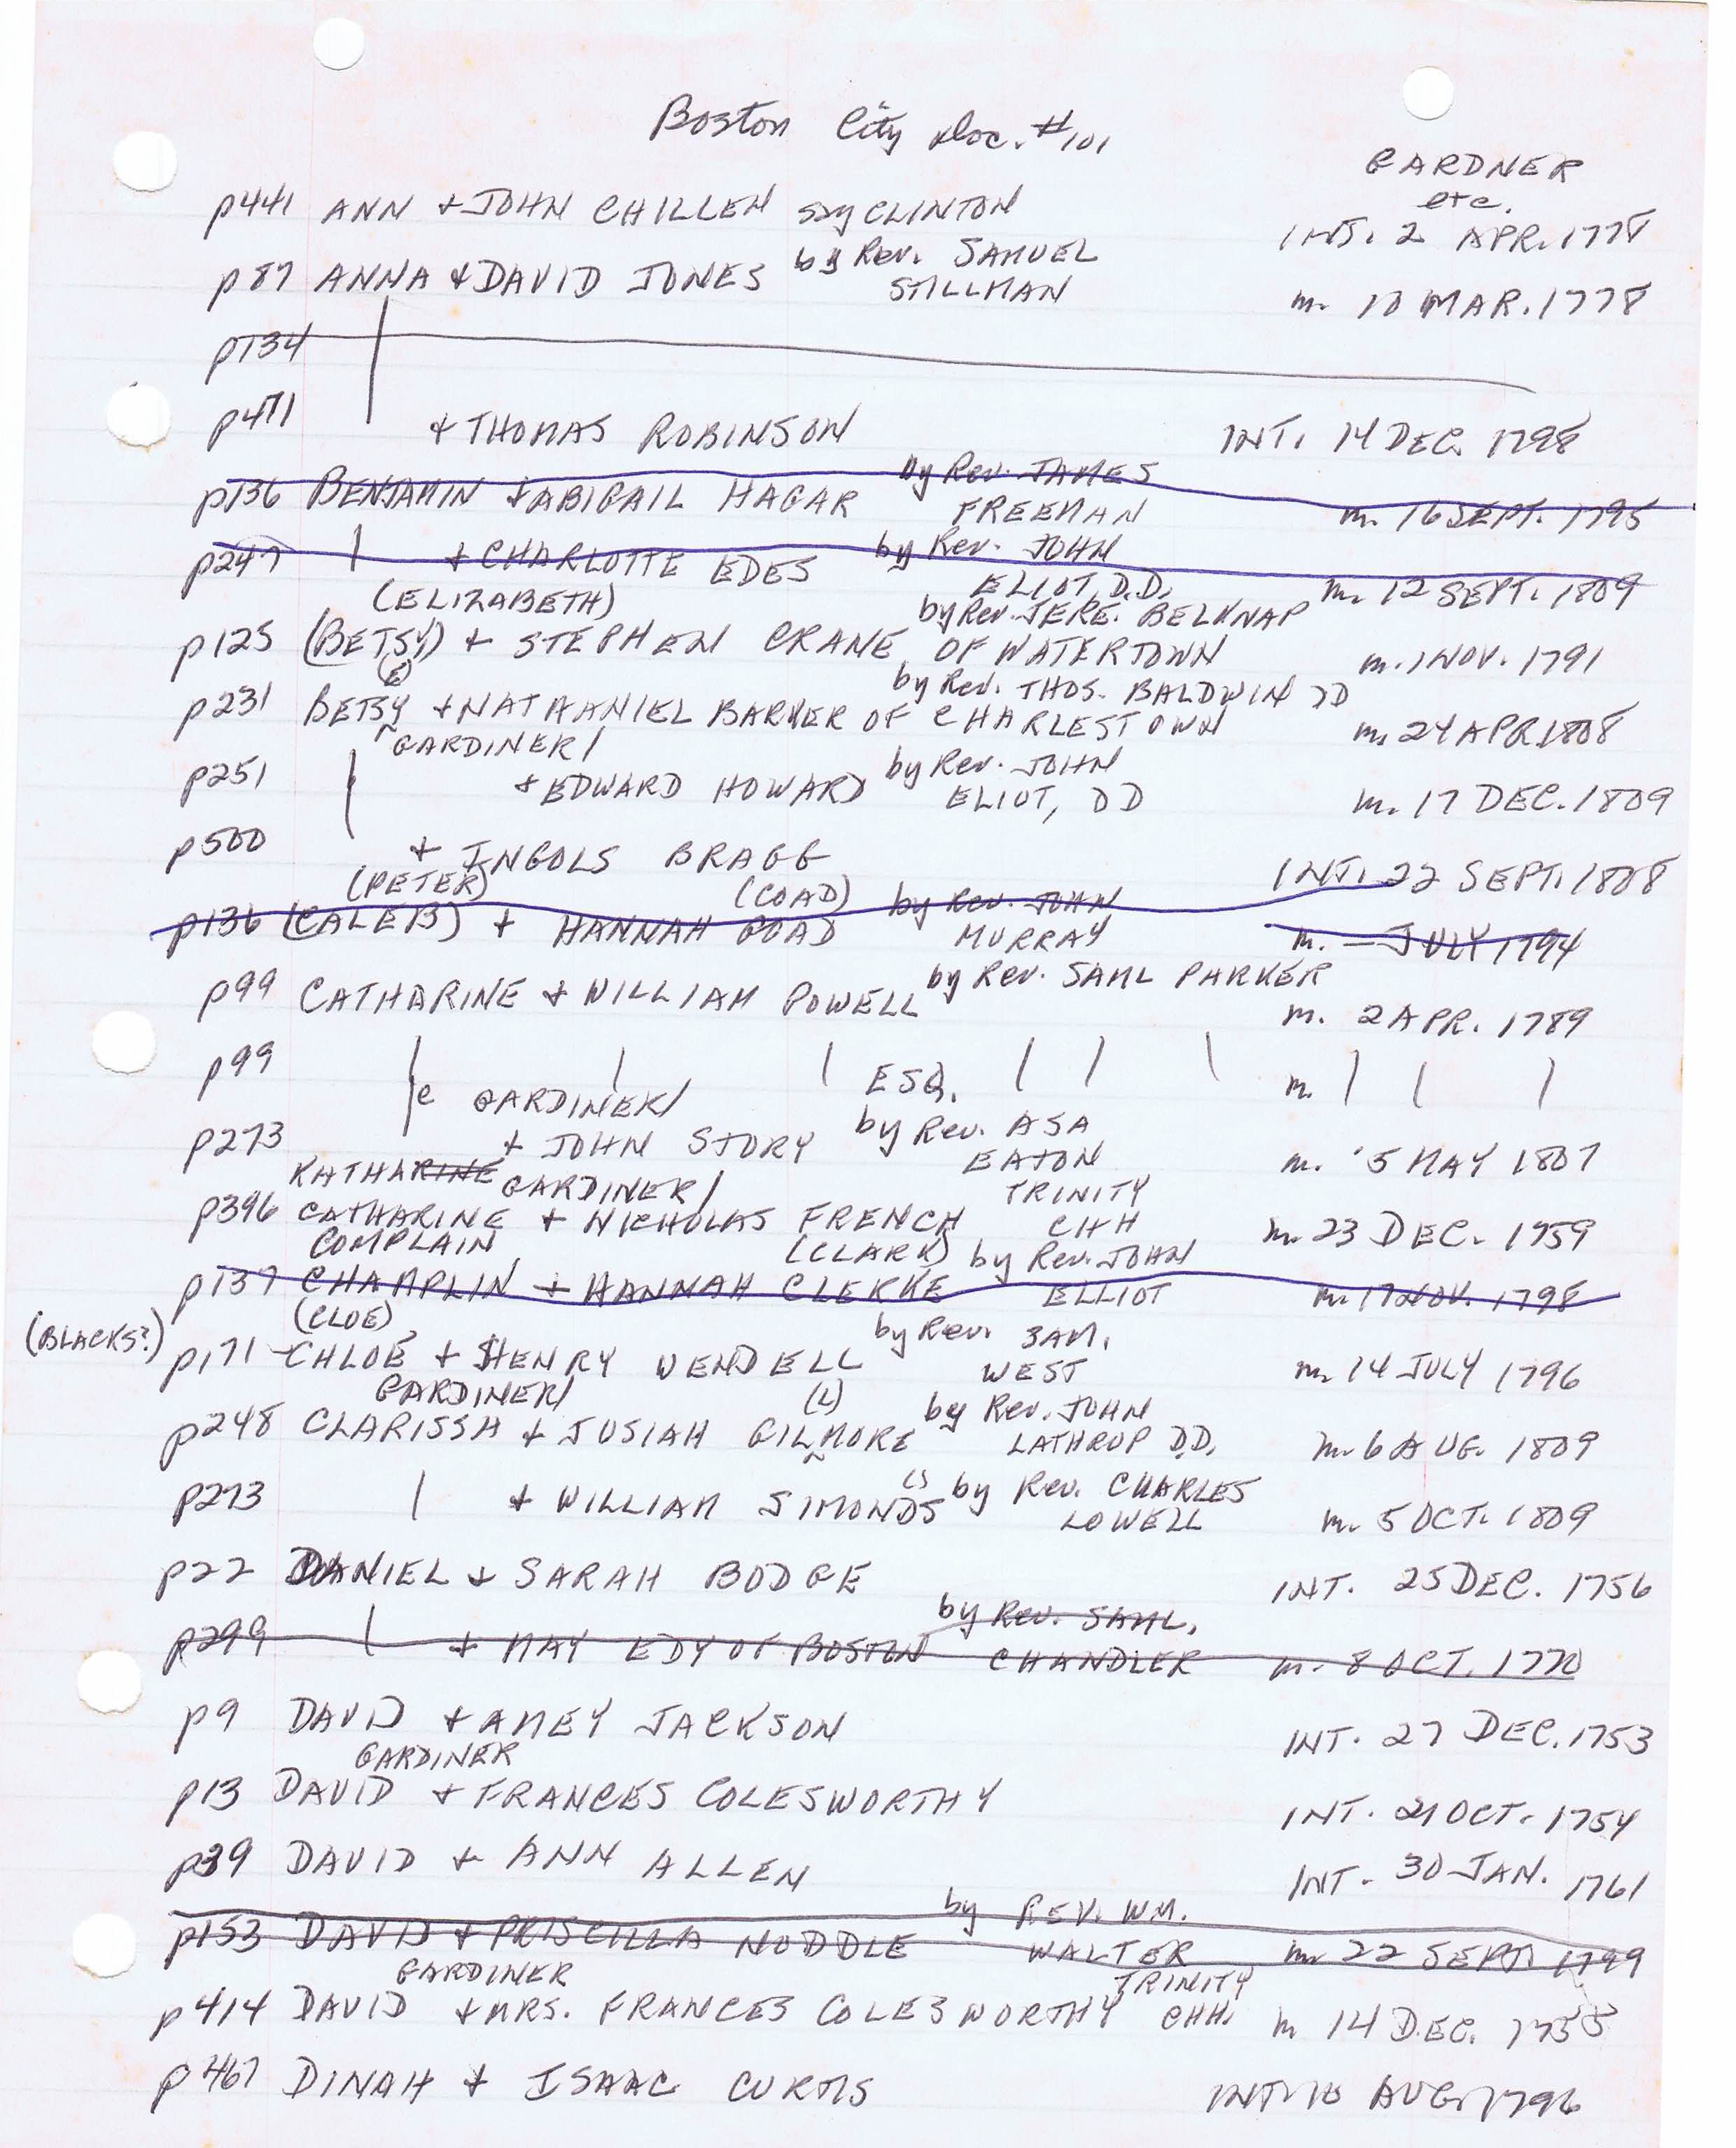 Boston City Doc. #101
GARDNER
etc.
p441 ANN + JOHN CHILLEN say CLINTON INT. 2 APR. 1778
by Rev. SAMUEL
p87 ANNA + DAVID JONES STILLMAN m. 10 MAR. 1778
p134
p471 + THOMAS ROBINSON INT. 14 DEC. 1798
by Rev. JAMES
p136 BENJAMIN + ABIGAIL HAGAR FREEMAN m. 16 SEPT. 1795
by Rev. JOHN
p247 | + CHARLOTTE EDES ELIOT, D.D. m. 12 SEPT. 1809
(ELIZABETH) by Rev. JERE. BELKNAP
p125 (BETSY) + STEPHEN CRANE OF WATERTOWN m. 1 NOV. 1791
(E) by Rev. THOS. BALDWIN DD
p231 BETSY + NATHANIEL BARKER OF CHARLESTOWN m. 24 APR 1808
GARDINER/ by Rev. JOHN
p251 | + EDWARD HOWARD ELIOT, DD m. 17 DEC. 1809
p500 + INGOLS BRAGG INT. 22 SEPT. 1808
(PETER) (COAD) by Rev. JOHN
p136 (CALEB) + HANNAH GOAD MURRAY m. — JULY 1794
by Rev. SAML PARKER
p99 CATHARINE + WILLIAM POWELL m. 2 APR. 1789
p99 | | | ESQ. | | | m. | | |
e GARDINER/ by Rev. ASA
p273 + JOHN STORY EATON m. 5 MAY 1807
KATHARINE GARDINER/ TRINITY
p396 CATHARINE + NICHOLAS FRENCH CHH m. 23 DEC. 1759
COMPLAIN (CLARK) by Rev. JOHN
p137 CHAMPLIN + HANNAH CLERKE ELLIOT m. 17 NOV. 1798
(CLOE) by Rev. SAM.
(BLACKS?) p171 CHLOE + HENRY WENDELL WEST m. 14 JULY 1796
GARDINER/ (L) by Rev. JOHN
p248 CLARISSA + JOSIAH GILMORE LATHROP D.D. m. 6 AUG. 1809
(S) by Rev. CHARLES
p273 | + WILLIAM SIMONDS LOWELL m. 5 OCT. 1809
p22 DANIEL + SARAH BODGE INT. 25 DEC. 1756
by Rev. SAML.
p299 | + MAY EDY OF BOSTON CHANDLER m. 8 OCT. 1770
p9 DAVID + AMEY JACKSON INT. 27 DEC. 1753
GARDINER
p13 DAVID + FRANCES COLESWORTHY INT. 21 OCT. 1754
p39 DAVID + ANN ALLEN INT. 30 JAN. 1761
by REV. WM.
p153 DAVID + PRISCILLA NODDLE WALTER m. 22 SEPT. 1799
GARDINER TRINITY
p414 DAVID + MRS. FRANCES COLESWORTHY CHH. m 14 DEC. 1755
p467 DINAH + ISAAC CURTIS INT. 10 AUG. 1796